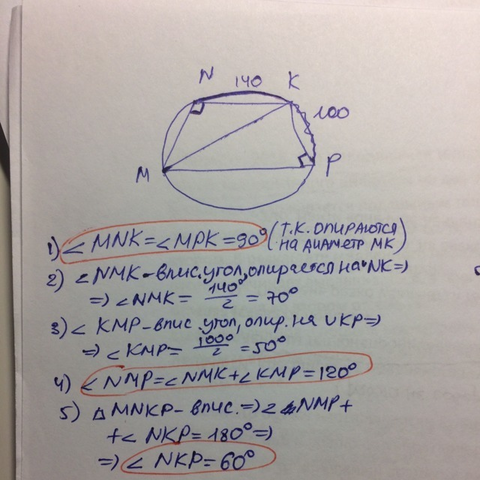 N 140 K
100
M P
1) ∠ MNK = ∠ MPK = 90° (Т.К. ОПИРАЮТСЯ НА ДИАМЕТР МК)
2) ∠ NMK – впис. угол, опирается на ◡NK ⇒
⇒ ∠ NMK = 140°/2 = 70°
3) ∠ KMP – впис. угол, опир. на ∪KP ⇒
⇒ ∠ KMP = 100°/2 = 50°
4) ∠ NMP = ∠ NMK + ∠ KMP = 120°
5) △ MNKP – впис. ⇒ ∠ NMP +
+ ∠ NKP = 180° ⇒
⇒ ∠ NKP = 60°